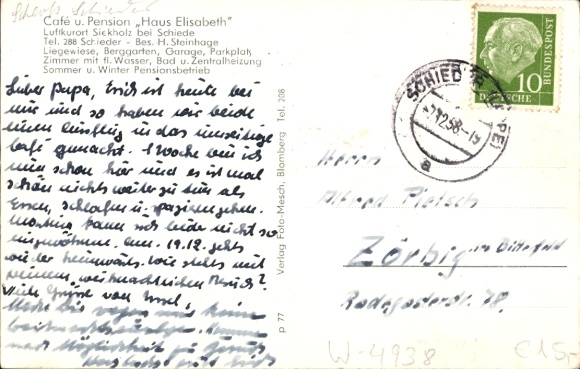 Schloß Schieder
Café u. Pension „Haus Elisabeth"
Luftkurort Sickholz bei Schiede
Tel. 288 Schieder - Bes. H. Steinhage
Liegewiese, Berggarten, Garage, Parkplatz
Zimmer mit fl. Wasser, Bad u. Zentralheizung
Sommer u. Winter Pensionsbetrieb
Lieber Papa, Erich ist heute bei
mir und so haben wir beide
einen Ausflug in das umseitige
Café gemacht. 1 Woche bin ich
nun schon hier und es ist mal
schön nichts weiter zu tun als
Essen, schlafen u. spazierengehen.
kann sich leider nicht so
eingewöhnen. Am 19.12. gehts
wieder heimwärts. Wie stehts mit
weihnachtlichen Besuch?
Viele Grüße von
keine
nach Möglichkeit zu
Herzlichst grüßt Erich
Verlag Foto-Mesch, Blomberg Tel. 208
p 77
SCHIEDER
12.58-19
a
10
DEUTSCHE
BUNDESPOST
Herrn
Alfred Pietsch
Zörbig Bitterfeld
Radegasterstr.
W-4938
€15,-